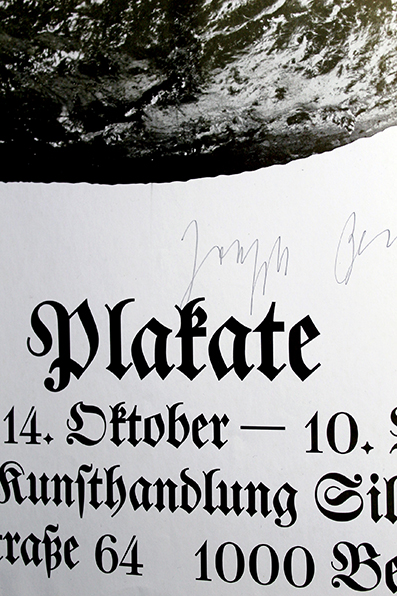 Joseph
Plakate
14. Oktober — 10.
Kunsthandlung Sil
traße 64 1000 Be